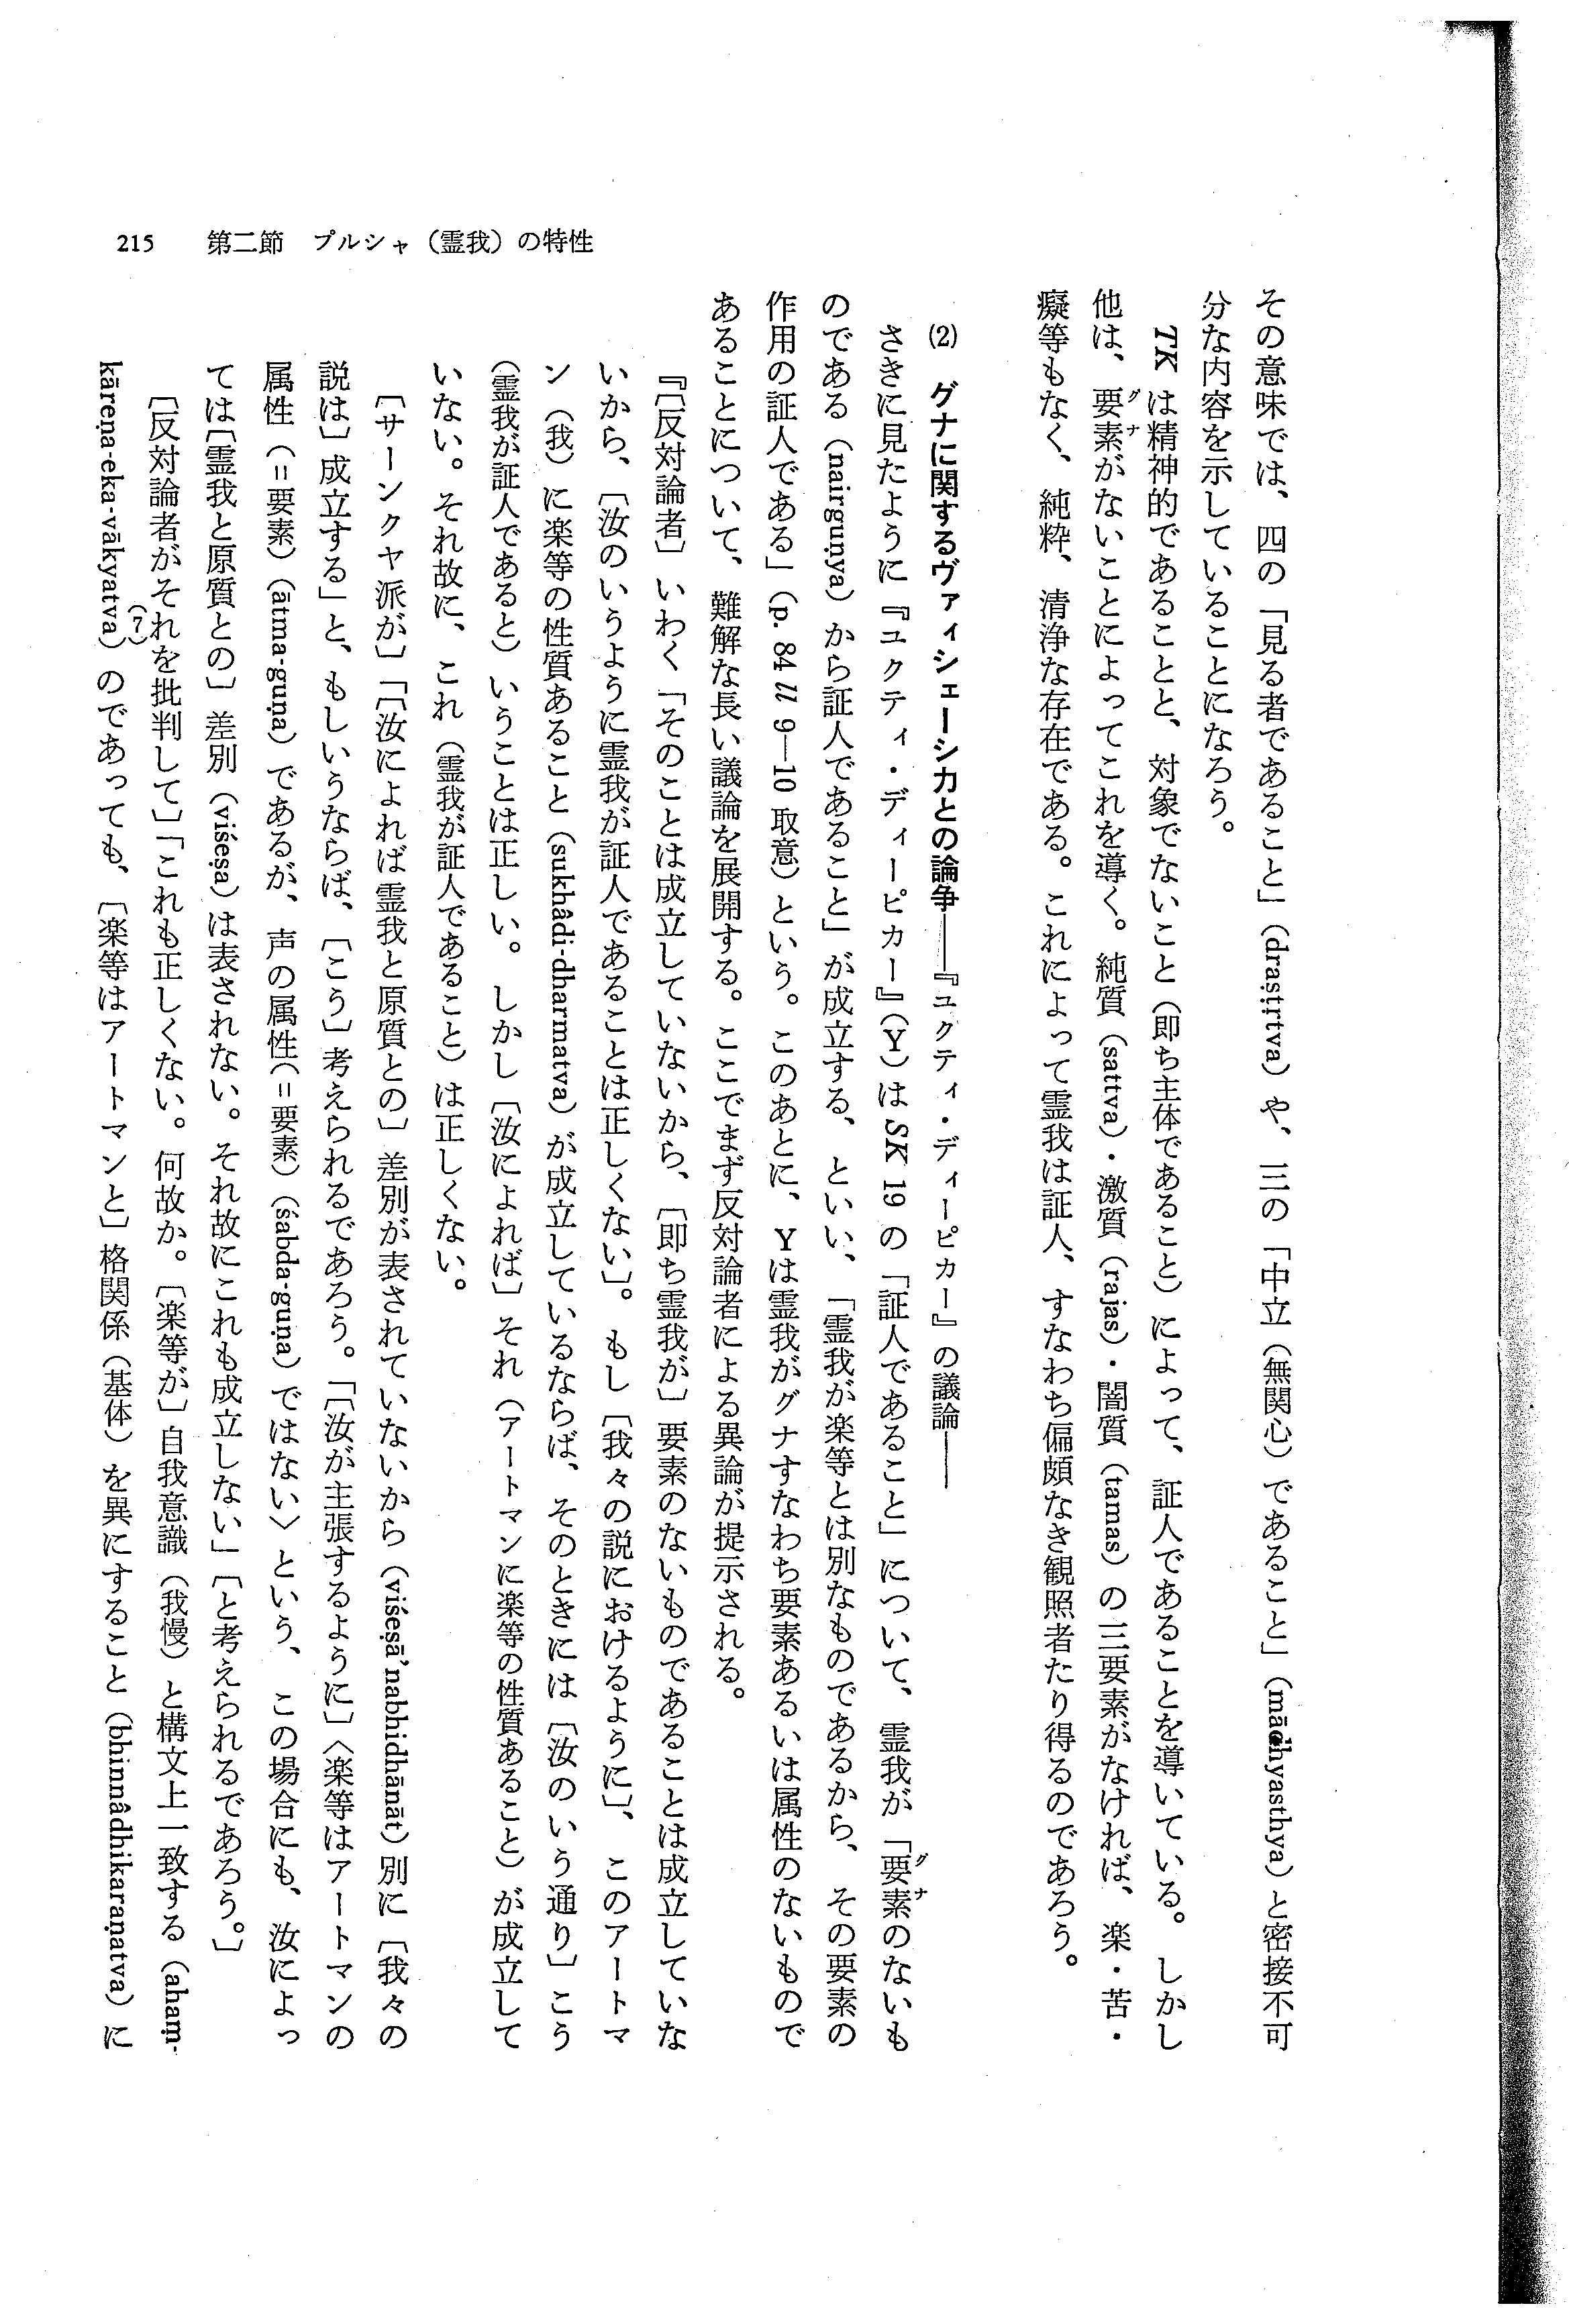 215　第二節　プルシャ（霊我）の特性
その意味では、四の「見る者であること」（draṣṭṛtva）や、三の「中立（無関心）であること」（mādhyasthya）と密接不可
分な内容を示していることになろう。
TK は精神的であることと、対象でないこと（即ち主体であること）によって、証人であることを導いている。しかし
他は、要素グナがないことによってこれを導く。純質（sattva）・激質（rajas）・闇質（tamas）の三要素がなければ、楽・苦・
癡等もなく、純粋、清浄な存在である。これによって霊我は証人、すなわち偏頗なき観照者たり得るのであろう。
(2)　グナに関するヴァイシェーシカとの論争――『ユクティ・ディーピカー』の議論――
さきに見たように『ユクティ・ディーピカー』（Y）は SK 19 の「証人であること」について、霊我が「要素グナのないも
のである（nairguṇya）から証人であること」が成立する、といい、「霊我が楽等とは別なものであるから、その要素の
作用の証人である」（p. 84 ll 9―10 取意）という。このあとに、Yは霊我がグナすなわち要素あるいは属性のないもので
あることについて、難解な長い議論を展開する。ここでまず反対論者による異論が提示される。
『〔反対論者〕いわく「そのことは成立していないから、〔即ち霊我が〕要素のないものであることは成立していな
いから、〔汝のいうように霊我が証人であることは正しくない〕。もし〔我々の説におけるように〕、このアートマ
ン（我）に楽等の性質あること（sukhâdi-dharmatva）が成立しているならば、そのときには〔汝のいう通り〕こう
（霊我が証人であると）いうことは正しい。しかし〔汝によれば〕それ（アートマンに楽等の性質あること）が成立して
いない。それ故に、これ（霊我が証人であること）は正しくない。
〔サーンクヤ派が〕「〔汝によれば霊我と原質との〕差別が表されていないから（viśeṣā'nabhidhānāt）別に〔我々の
説は〕成立する」と、もしいうならば、〔こう〕考えられるであろう。「〔汝が主張するように〕〈楽等はアートマンの
属性（＝要素）（ātma-guṇa）であるが、声の属性（＝要素）（śabda-guṇa）ではない〉という、この場合にも、汝によっ
ては〔霊我と原質との〕差別（viśeṣa）は表されない。それ故にこれも成立しない」〔と考えられるであろう。〕
〔反対論者がそれを批判して〕「これも正しくない。何故か。〔楽等が〕自我意識（我慢）と構文上一致する（ahaṃ-
kāreṇa-eka-vākyatva）(7)のであっても、〔楽等はアートマンと〕格関係（基体）を異にすること（bhinnâdhikaraṇatva）に